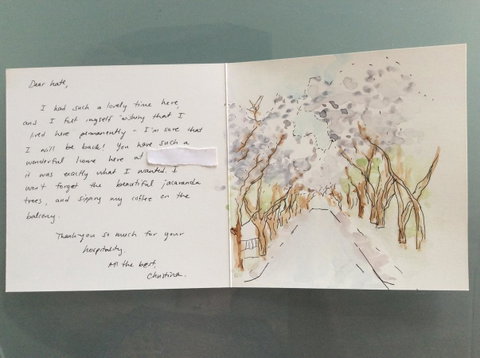 Dear Kate,
I had such a lovely time here,
and I felt myself wishing that I
lived here permanently - I'm sure that
I will be back! You have such a
wonderful home here at
it was exactly what I wanted. I
won't forget the beautiful jacaranda
trees, and sipping my coffee on the
balcony.
Thankyou so much for your
hospitality
All the best
Christina.